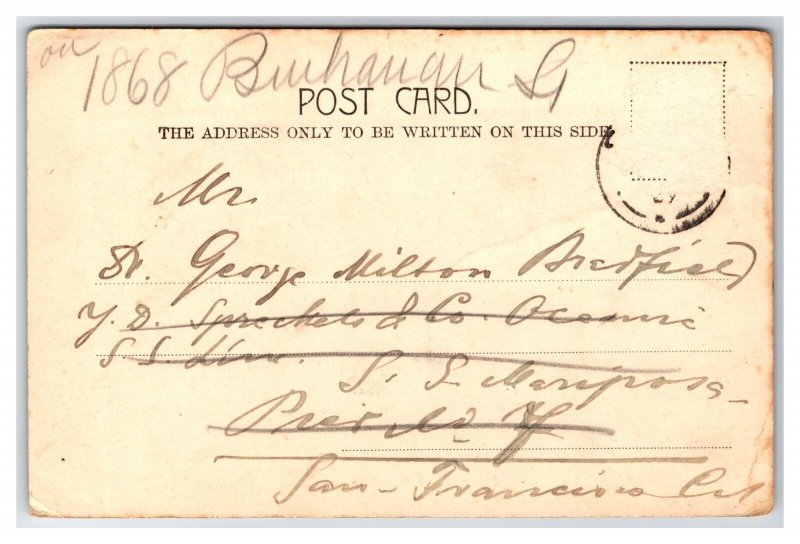 1868 Buchanan St
POST CARD.
THE ADDRESS ONLY TO BE WRITTEN ON THIS SIDE
Mr.
Dr. George Milton Bradfield
J. D. Spreckels & Co. Oceanic
S. S. Line.
S. S. Mariposa
Pier No 7
San Francisco Cal